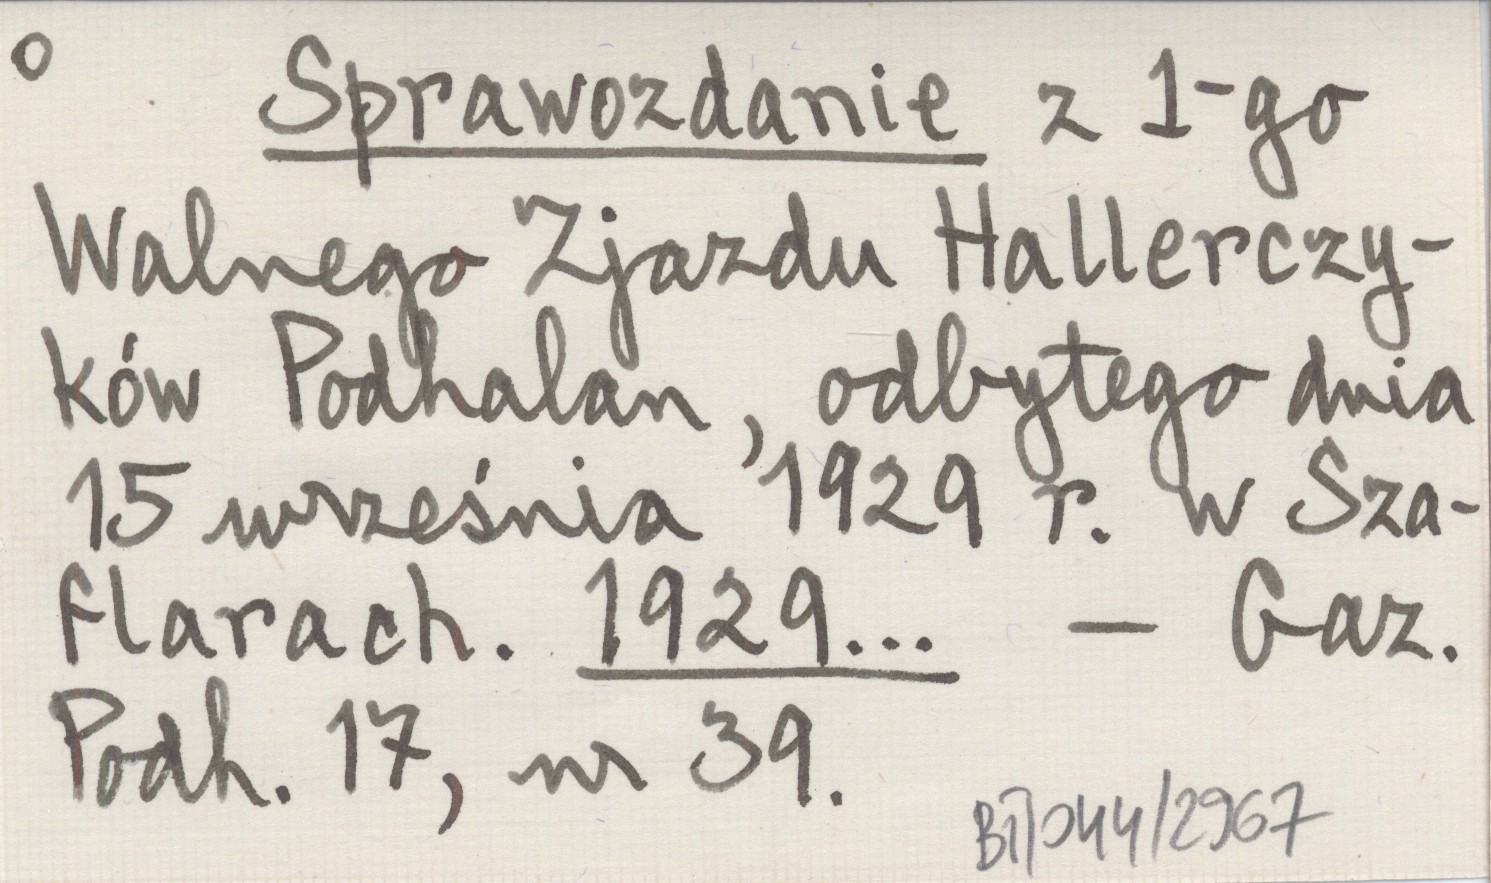 o Sprawozdanie z 1-go
Walnego Zjazdu Hallerczy-
ków Podhalan, odbytego dnia
15 września 1929 r. w Sza-
flarach. 1929... — Gaz.
Podh. 17, nr 39.